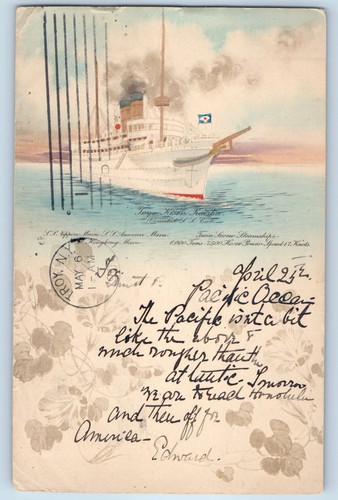 Toyo Kisen Kaisha
S.S. Nippon Maru. S.S. America Maru.
Hongkong Maru.
Twin Screw Steamships
6,000 Tons. 7,500 Horse Power. Speed 17 Knots.
TROY, N.Y.
MAY 6
AM
April 25th
Pacific Ocean
The Pacific isn't a bit
like the above &
much rougher than the
atlantic. Tomorrow
we are to reach Honolulu
and then off for
America—
Edward.